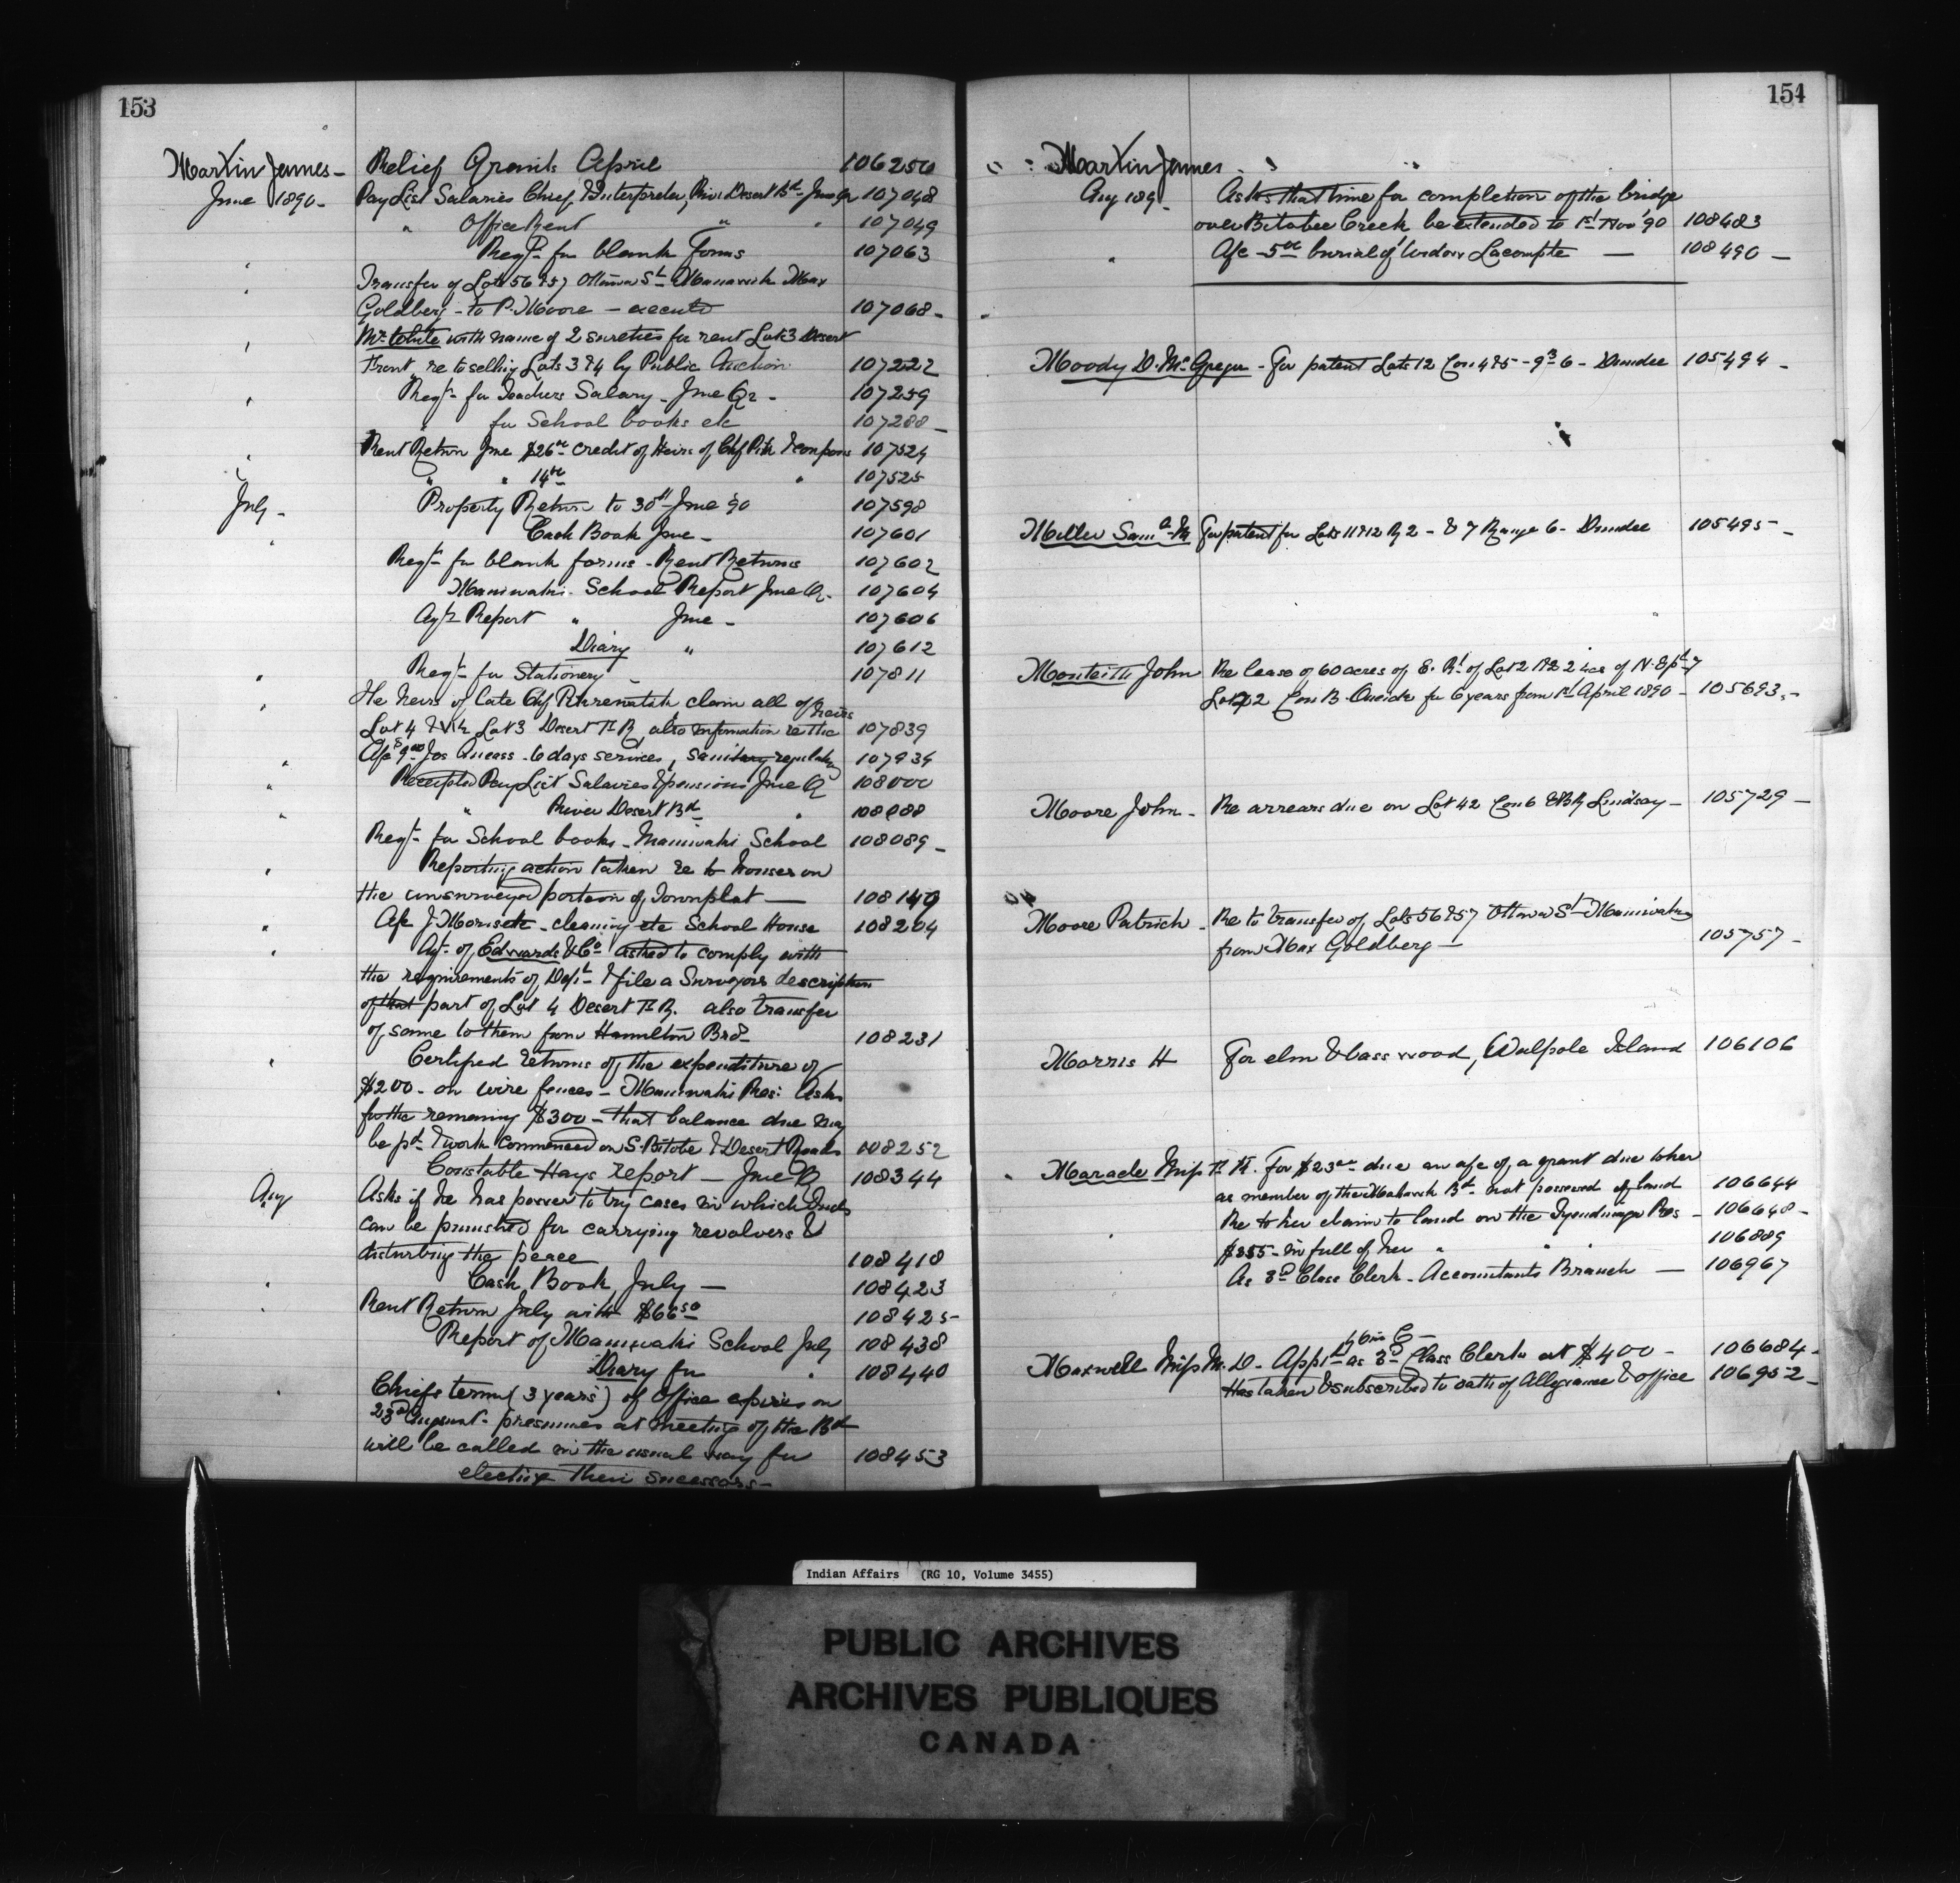 153
Martin James - Relief Grants April 106250
June 1890 - Pay List Salaries Chief, & Interpreter, River Desert Bd - June Qr 107048
" Office Rent " " 107049
Reqn for blank Forms 107063
Transfer of Lots 56 & 57 Ottawa St Maniwaki Max
Goldberg - to P. Moore - executed 107068 -
Mr White with name of 2 sureties for rent Lot 3 Desert
Front, re to selling Lots 3 & 4 by Public Auction 107222
Reqn for Teachers Salary - June Qr - 107259
" for School books etc 107288 -
Rent Return June $26 00 credit of Heirs of Chf 107524
" " 14 00 " 107525
July - Property Return to 30th June 90 107598
Cash Book June - 107601
Reqn for blank forms - Rent Returns 107602
Maniwaki School Report June Qr. 107604
Agts Report " June - 107606
Diary " 107612
Reqn for Stationery - 107811
The heirs of late Chf claim all of
Lot 4 & Lot 3 Desert Ft R, also information re the heirs 107839
Afc $9 00 Jos 6 days services, sanitary regulatns 107934
Receipted Pay List Salaries & pensions June Q 108000
" River Desert Bd " 108088
Reqn for School books - Maniwaki School 108089 -
Reporting action taken re to houses on
the unsurveyed portion of Townplat - 108140
Afc J Morisette - cleaning etc School House 108204
Agt of Edwards & Co asked to comply with
the requirements of Dept & file a Surveyors description
of that part of Lot 4 Desert Ft R. also transfer
of same to them from Hamilton Bros 108231
Certified returns of the expenditure of
$200 - on wire fences - Maniwaki Res: Asks
for the remaining $300 - that balance due may
be pd & work commenced on S. Bitobe & Desert Roads 108252
Constable Hays report - June Q 108344
Aug Asks if he has power to try cases in which Inds
can be punished for carrying revolvers &
disturbing the peace 108418
" Cash Book July - 108423
Rent Return July with $66 50 108425 -
Report of Maniwaki School July 108438
Diary for " 108440
Chiefs term (3 years) of Office expires on
23rd August - presumes at meeting of the Bd
will be called in the usual way for 108453
electing their successors -
154
Martin James " "
Aug 189 - Asks that time for completion of the bridge
over Bitobee Creek be extended to 1st Nov '90 108483
" Afc 5 00 burial of Widow Lacompte - 108490 -
Moody D. McGregor - For patent Lots 12 Con 4 & 5 - 9 3 6 - Dundee 105494 -
Miller Saml M For patent for Lots 11 & 12 R 2 - & 7 Range 6 - Dundee 105495 -
Monteith John Re lease of 60 acres of E. Pt of Lot 2 & 24 ac of N. E pt of
Lot 2 Con B. Oneida for 6 years from 1st April 1890 - 105693 -
Moore John - Re arrears due on Lot 42 Con 6 EBR Lindsay - 105729 -
Moore Patrick - Re to transfer of Lots 56 & 57 Ottawa St Maniwaki
from Max Goldberg - 105757 -
Morris H For elm & basswood, Walpole Island 106106
Maracle Miss For $23 00 due on afc of a grant due to her
as member of the Mohawk Bd - not possessed of land 106644
Re to her claim to land on the Tyendinaga Res - 106648 -
" $355 - in full of her " " 106889
As 3rd Class Clerk - Accountants Branch - 106967
Maxwell Miss M. D. - Appt by O in C - as 3rd Class Clerk at $400 - 106684 -
Has taken & subscribed to oath of Allegiance & office 106952 -
Indian Affairs (RG 10, Volume 3455)
PUBLIC ARCHIVES
ARCHIVES PUBLIQUES
CANADA